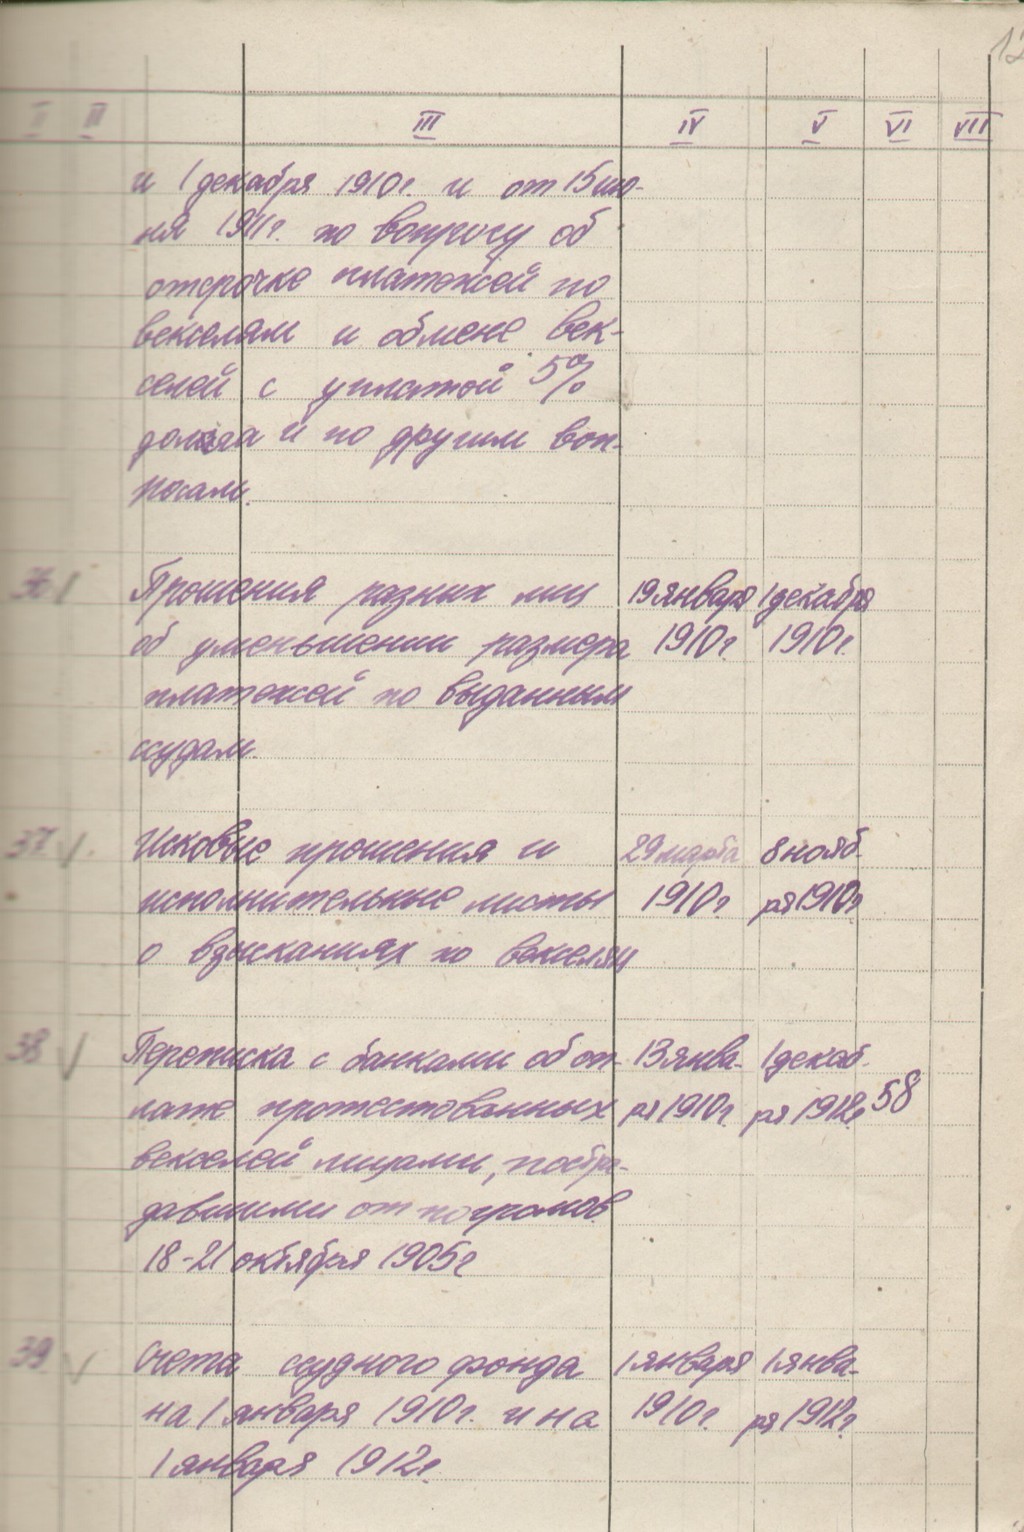 12
I II III IV V VI VII
и 1 декабря 1910г. и от 15 ию-
ня 1911г. по вопросу об
отсрочке платежей по
векселям и обмене век-
селей с уплатой 5%
долга и по другим воп-
росам.
36 Прошения разных лиц 19 января 1 декабря
об уменьшении размера 1910г. 1910г.
платежей по выданным
ссудам.
37 Исковые прошения и 29 марта 8 нояб-
исполнительные листы 1910г. ря 1910г.
о взысканиях по векселям
38 Переписка с банками об оп- 13 янва- 1 декаб-
лате протестованных ря 1910г. ря 1912г. 58
векселей лицами, постра-
давшими от погромов
18-21 октября 1905г
39 Счета ссудного фонда 1 января 1 янва-
на 1 января 1910г. и на 1910г. ря 1912г.
1 января 1912г.